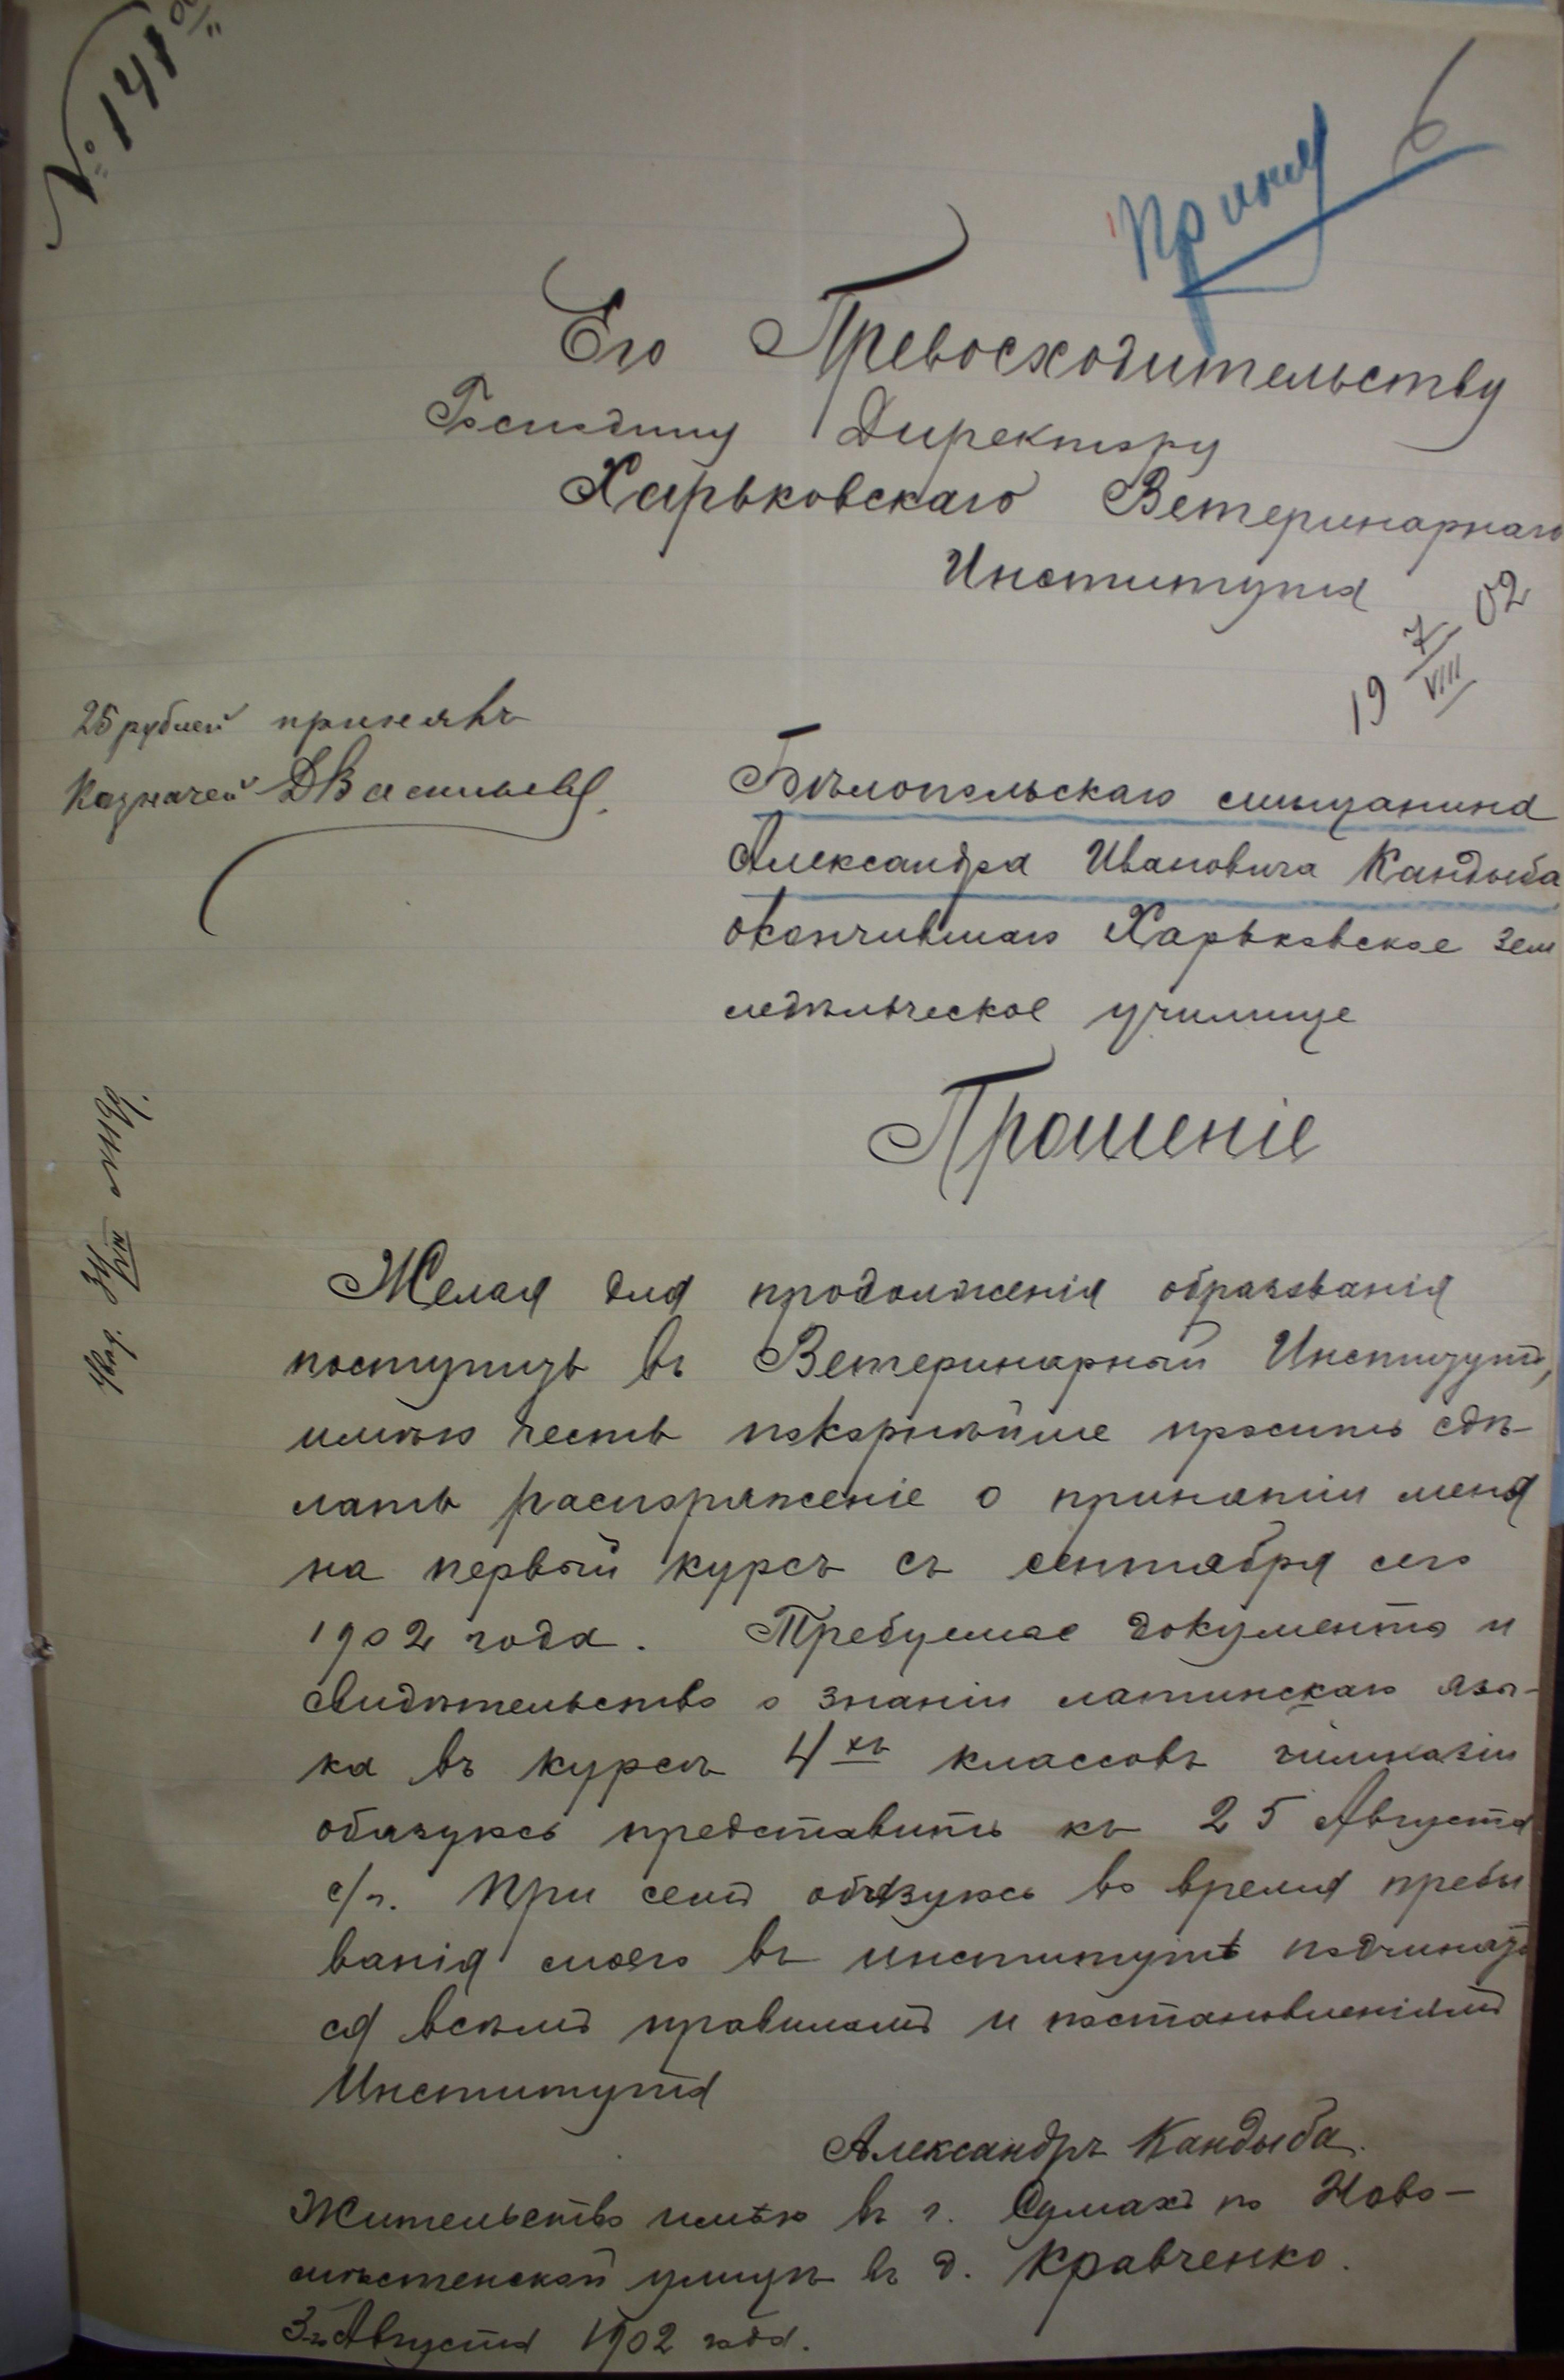 № 141
6
Его Превосходительству
Господину Директору
Харьковскаго Ветеринарнаго
Института
19 7/VIII 02
25 рублей принялъ
Казначей ДВасильевъ
Бѣлопольскаго мѣщанина
Александра Ивановича Кандыба
окончившаго Харьковское зем
ледѣльческое училище
Прошеніе
Желая для продолженія образованія
поступить въ Ветеринарный Институтъ,
имѣю честь покорнѣйше просить сдѣ-
лать распоряженіе о принятіи меня
на первый курсъ съ сентября сего
1902 года. Требуемые документы и
свидѣтельство о знаніи латинскаго язы-
ка въ курсѣ 4хъ классовъ гимназіи
обязуюсь представить къ 25 Августа
с/г. При семъ обязуюсь во время пребы
ванія моего въ институтѣ подчинять
ся всѣмъ правиламъ и постановленіямъ
Института
Александръ Кандыба.
Жительство имѣю въ г. Сумахъ по Ново-
мѣстенской улицѣ въ д. Кравченко.
3го Августа 1902 года.